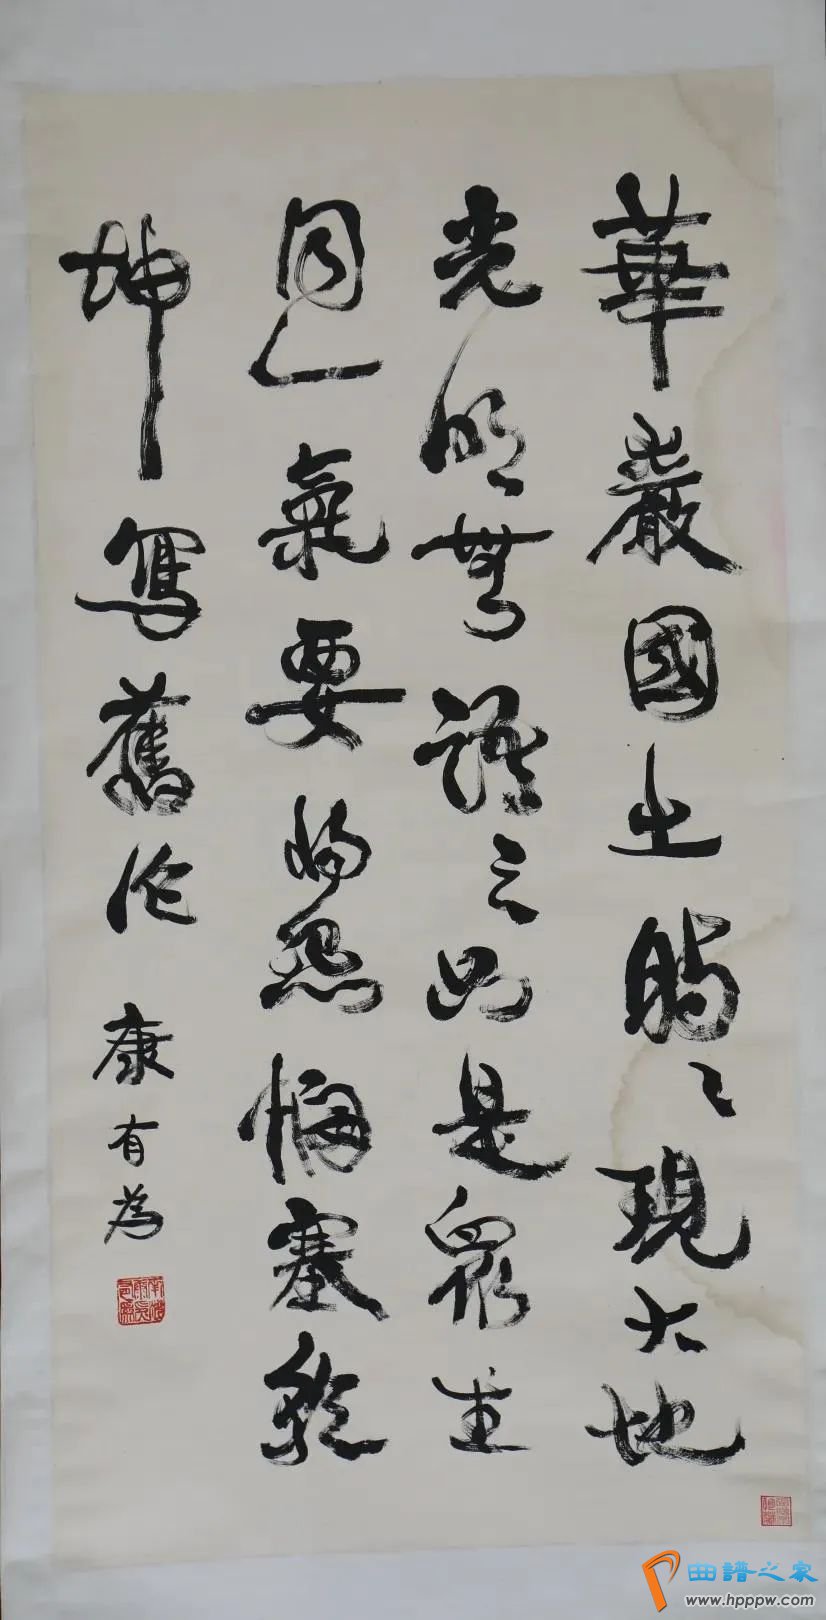 華嚴國土時〻現大地
光明無語言如是眾生
同一氣要將悲憫塞乾
坤寫舊作 康有為
曲譜之家
www.hpppw.com